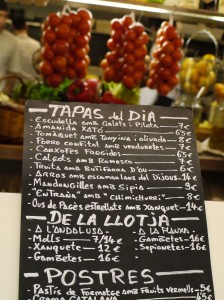 TAPAS del DIA
- Escudella amb Galets i Pilota — 7€
- Amanida XATÓ — 6,5€
- Tomàquet amb Tonyina i olivada — 8€
- Porro confitat amb verduretes — 7€
- Carxofes Fregides — 6,5€
- Calçots amb Romesco — 7€
- Truita amb Botifarra d'Ou — 7€
- Arros amb escamarlans del Dijous — 14€
- Mandonguilles amb Sipia — 9€
- Entraña amb "chimichurri" — 8€
- Ous de Pagès estrellats amb Xanquet — 14€
DE LA LLOTJA
- A L'ANDALUSA - A LA PLANXA
- Molls — 7/14€ - Gambetes - 16€
- Xanquete — 12€ - Sepionetes - 16€
- Gambetes — 16€
POSTRES
- Pastís de formatge amb Fruits vermells - 5€
- Crema CATALANA